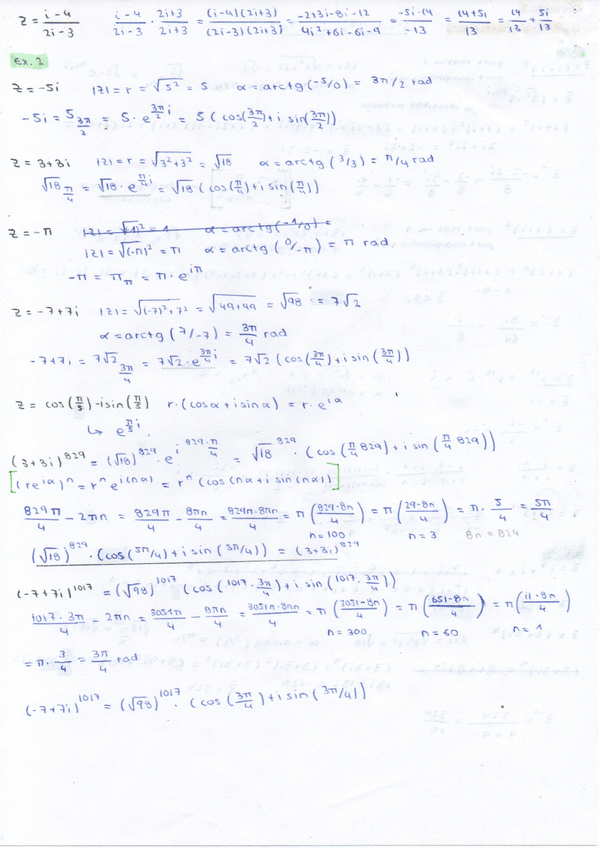 z = (i-4)/(2i-3)   (i-4)/(2i-3) · (2i+3)/(2i+3) = (i-4)(2i+3)/(2i-3)(2i+3) = (-2+3i-8i-12)/(4i²+6i-6i-9) = (-5i-14)/(-13) = (14+5i)/13 = 14/13 + 5i/13
Ex. 2
z = -5i   |z| = r = √5² = 5   α = arctg(-5/0) = 3π/2 rad
-5i = 5_(3π/2) = 5·e^(3π/2 i) = 5(cos(3π/2)+i sin(3π/2))
z = 3+3i   |z| = r = √(3²+3²) = √18   α = arctg(3/3) = π/4 rad
√18_(π/4) = √18·e^(π/4 i) = √18(cos(π/4)+i sin(π/4))
z = -π   |z| = √(-1)² = 1   α = arctg(-1/0) =
|z| = √(-π)² = π   α = arctg(0/-π) = π rad.
-π = π_π = π·e^(iπ)
z = -7+7i   |z| = √((-7)²+7²) = √(49+49) = √98 = 7√2
α = arctg(7/-7) = 3π/4 rad
-7+7i = 7√2_(3π/4) = 7√2·e^(3π/4 i) = 7√2(cos(3π/4)+i sin(3π/4))
z = cos(π/5)-i sin(π/5)   r·(cosα+i sinα) = r·e^(iα)
↳ e^(π/5 i)
(3+3i)^829 = (√18)^829·e^(i 829·π/4) = √18^829·(cos(π/4 829)+i sin(π/4 829))
[(re^(iα))^n = r^n e^(i(nα)) = r^n(cos(nα+i sin(nα))]
829π/4 - 2πn = 829π/4 - 8πn/4 = (829π-8πn)/4 = π((829-8n)/4) = π((29-8n)/4) = π·5/4 = 5π/4
n=100   n=3   8n=824
(√18)^829·(cos(5π/4)+i sin(5π/4)) = (3+3i)^829
(-7+7i)^1017 = (√98)^1017(cos(1017·3π/4)+i sin(1017·3π/4))
1017·3π/4 - 2πn = 3051π/4 - 8πn/4 = (3051π-8πn)/4 = π((3051-8n)/4) = π((651-8n)/4) = π((11-8n)/4)
n=300   n=60   n=1
= π·3/4 = 3π/4 rad
(-7+7i)^1017 = (√98)^1017·(cos(3π/4)+i sin(3π/4))